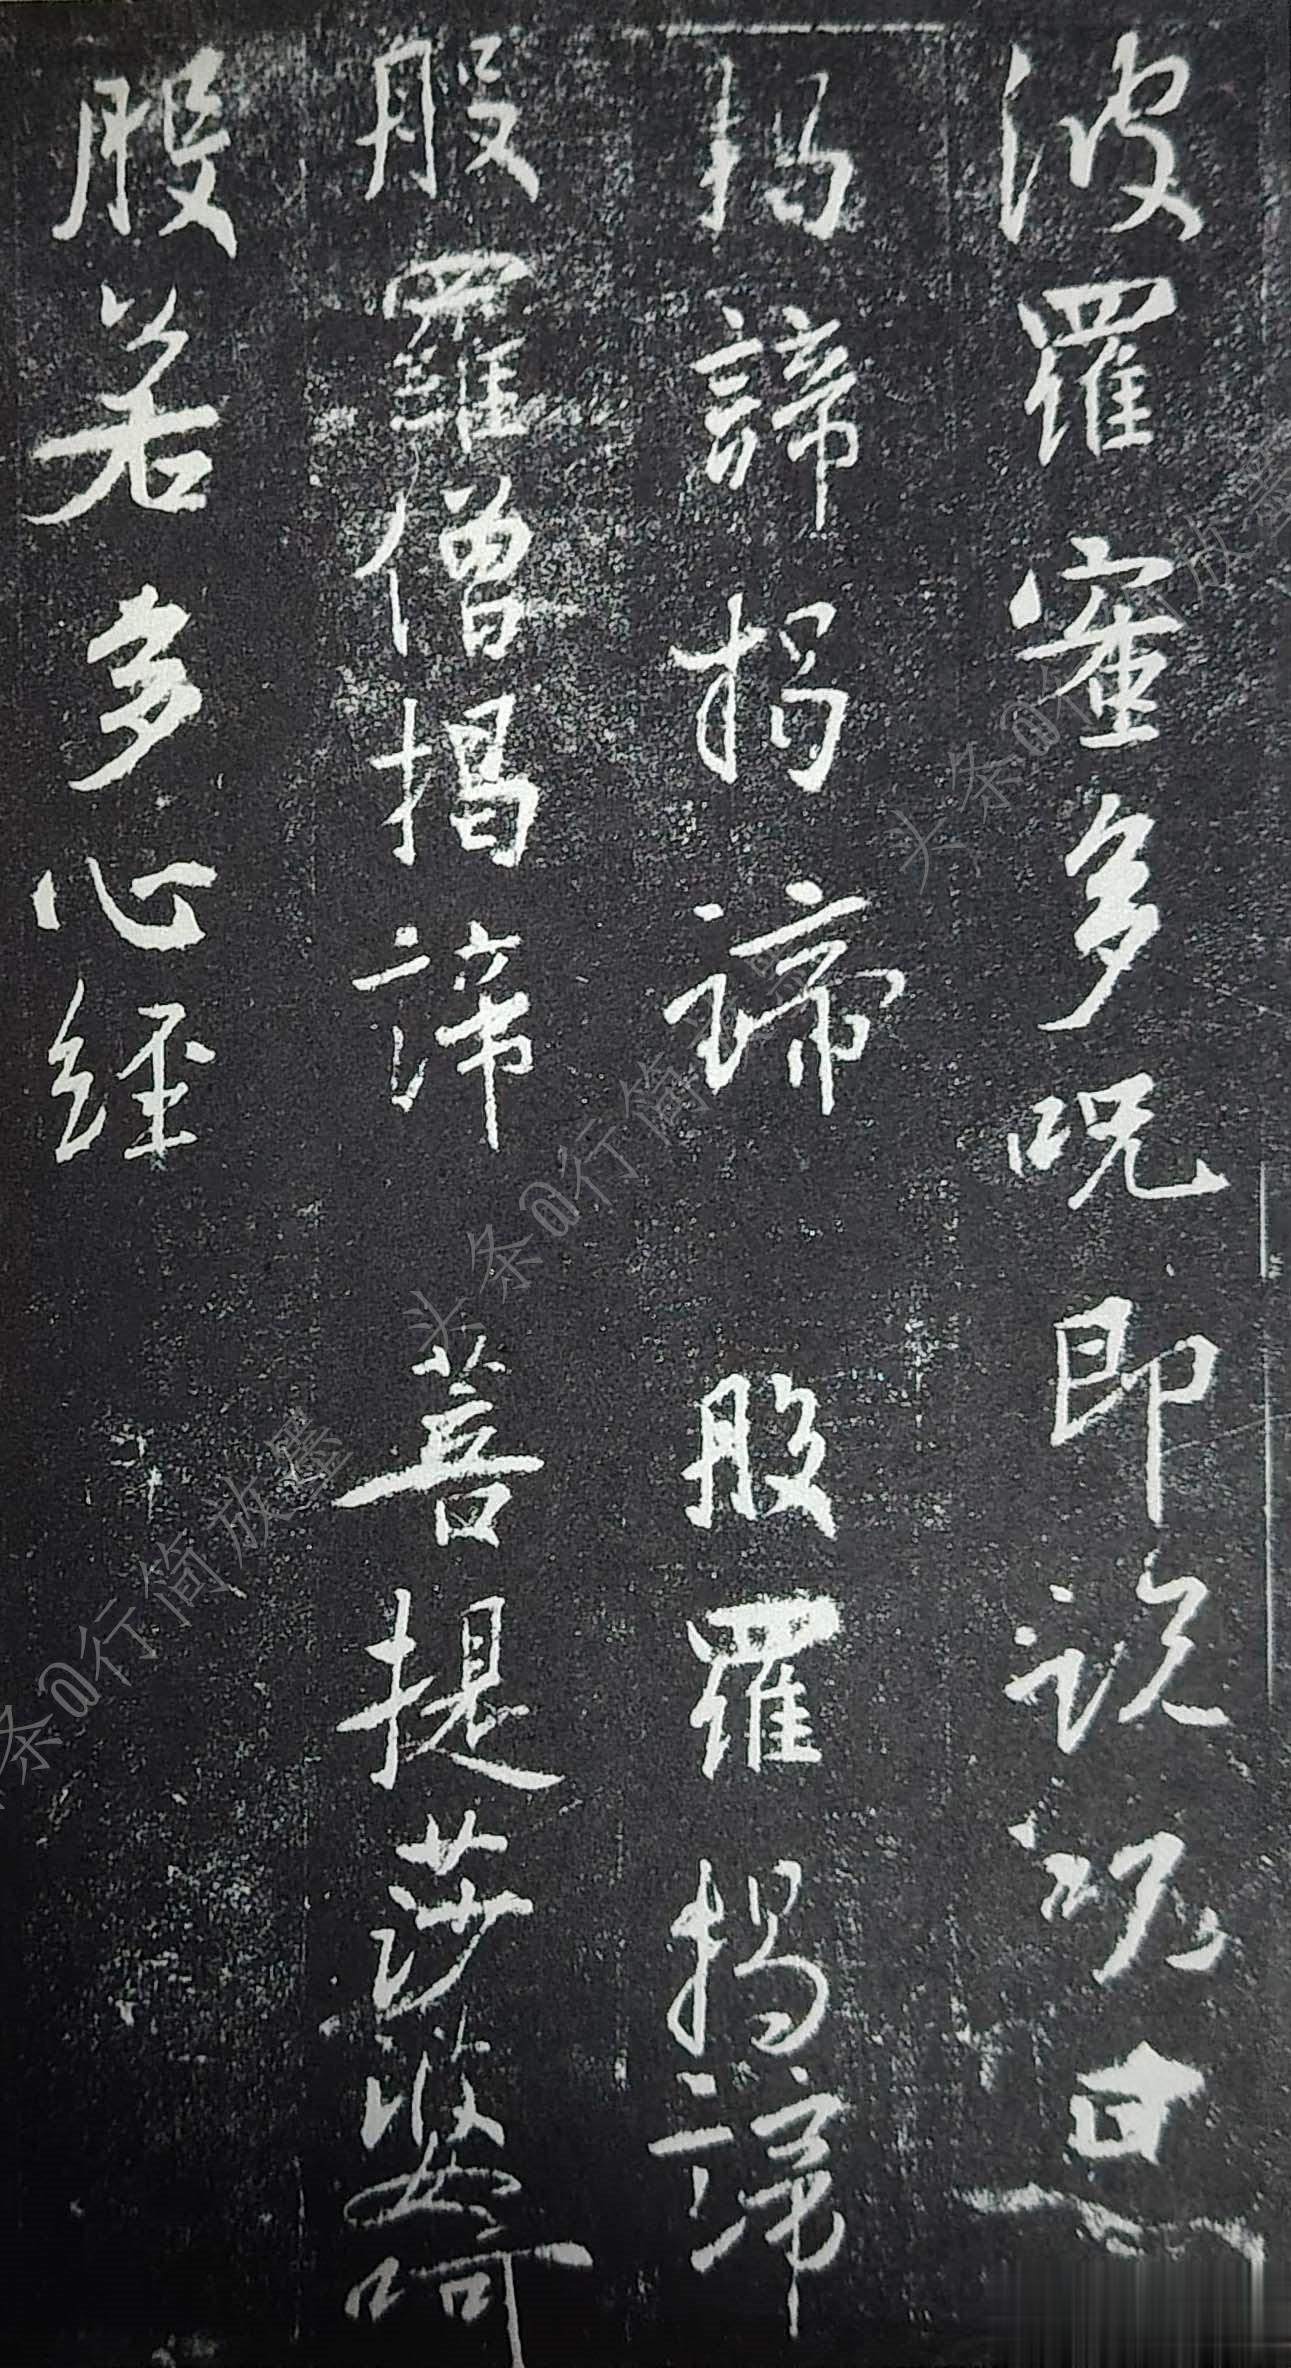 波羅蜜多呪即說呪曰
揭諦揭諦 般羅揭諦
般羅僧揭諦 菩提莎婆呵
般若多心經
头条@行简放墨
头条@行简放墨
条@行简放墨